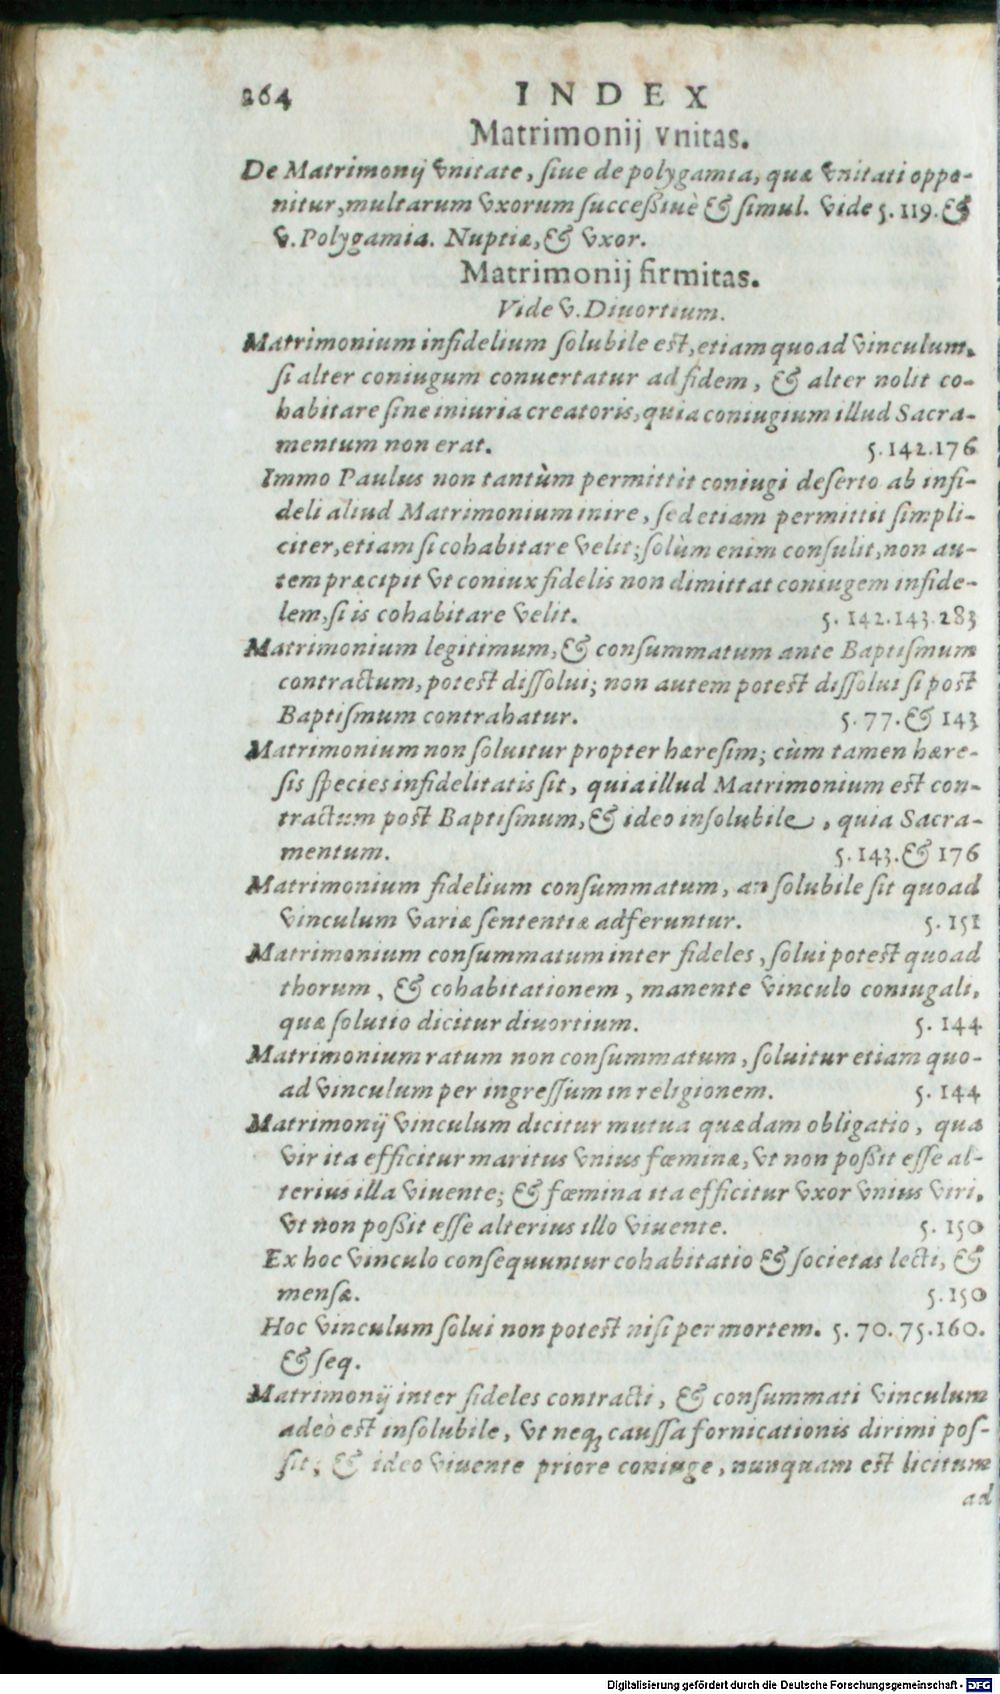 264 INDEX
Matrimonij vnitas.
De Matrimonij vnitate, siue de polygamia, quæ vnitati oppo-
nitur, multarum vxorum successiuè & simul. vide 5. 119. &
v. Polygamia. Nuptiæ, & vxor.
Matrimonij firmitas.
Vide v. Diuortium.
Matrimonium infidelium solubile est, etiam quoad vinculum,
si alter coniugum conuertatur ad fidem, & alter nolit co-
habitare sine iniuria creatoris, quia coniugium illud Sacra-
mentum non erat. 5. 142. 176
Immo Paulus non tantùm permittit coniugi deserto ab infi-
deli aliud Matrimonium inire, sed etiam permittit simpli-
citer, etiam si cohabitare velit; solùm enim consulit, non au-
tem præcipit vt coniux fidelis non dimittat coniugem infide-
lem, si is cohabitare velit. 5. 142. 143. 283
Matrimonium legitimum, & consummatum ante Baptismum
contractum, potest dissolui; non autem potest dissolui si post
Baptismum contrahatur. 5. 77. & 143
Matrimonium non soluitur propter hæresim; cùm tamen hære-
sis species infidelitatis sit, quia illud Matrimonium est con-
tractum post Baptismum, & ideo insolubile, quia Sacra-
mentum. 5. 143. & 176
Matrimonium fidelium consummatum, an solubile sit quoad
vinculum variæ sententiæ adferuntur. 5. 151
Matrimonium consummatum inter fideles, solui potest quoad
thorum, & cohabitationem, manente vinculo coniugali,
quæ solutio dicitur diuortium. 5. 144
Matrimonium ratum non consummatum, soluitur etiam quo-
ad vinculum per ingressum in religionem. 5. 144
Matrimonij vinculum dicitur mutua quædam obligatio, qua
vir ita efficitur maritus vnius fœminæ, vt non possit esse al-
terius illa viuente; & fœmina ita efficitur vxor vnius viri,
vt non possit esse alterius illo viuente. 5. 150
Ex hoc vinculo consequuntur cohabitatio & societas lecti, &
mensæ. 5. 150
Hoc vinculum solui non potest nisi per mortem. 5. 70. 75. 160.
& seq.
Matrimonij inter fideles contracti, & consummati vinculum
adeò est insolubile, vt neq; caussa fornicationis dirimi pos-
sit; & ideo viuente priore coniuge, nunquam est licitum
ad
Digitalisierung gefördert durch die Deutsche Forschungsgemeinschaft - DFG